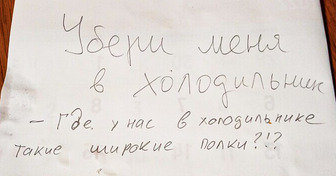 Убери меня
в холодильник
- Где у нас в холодильнике
такие широкие полки?!?